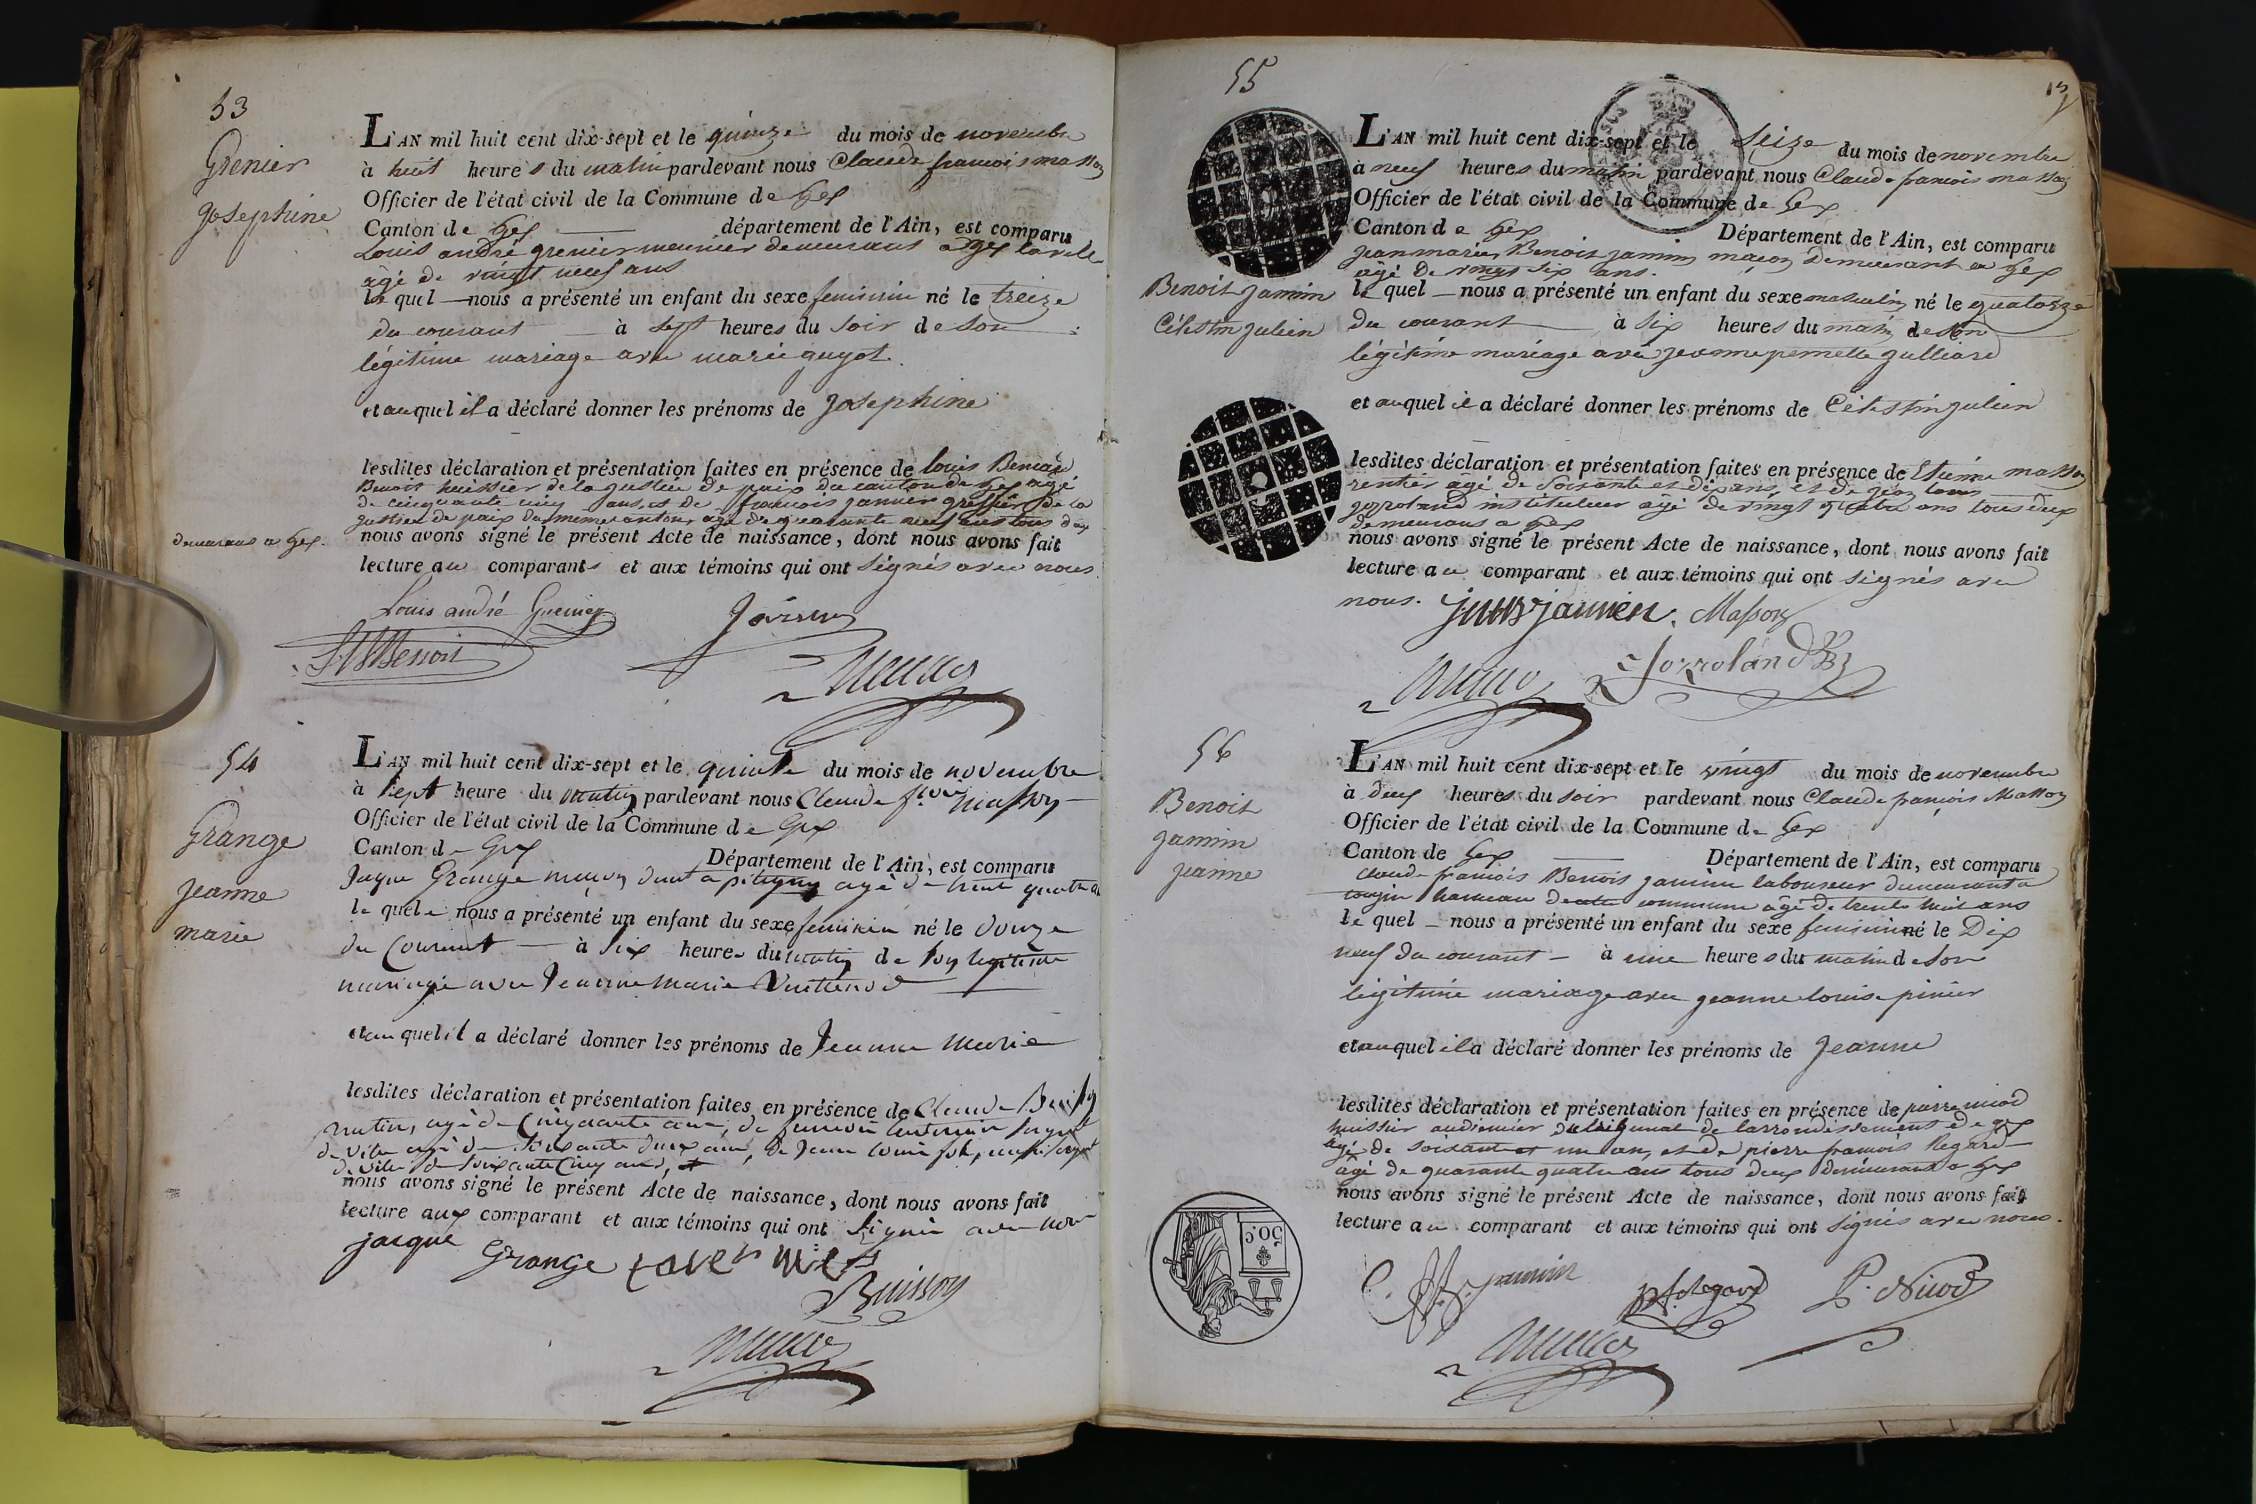 53
Grenier
Josephine
L'AN mil huit cent dix-sept et le quinze du mois de novembre
à huit heures du matin pardevant nous Claude françois masson
Officier de l'état civil de la Commune de Gex
Canton de Gex département de l'Ain, est comparu
Louis andré grenier meunier demeurant a gex la ville
âgé de vingt neuf ans
le quel nous a présenté un enfant du sexe feminin né le treize
du courant à sept heures du soir de son
légitime mariage avec marie guyot.
et auquel il a déclaré donner les prénoms de Josephine
lesdites déclaration et présentation faites en présence de louis Bernard
Benoit huissier de la justice de paix du canton de Gex agé
de cinquante cinq ans, et de françois janvier greffier de la
justice de paix du meme canton, agé de quarante neuf ans tous deux
demeurans a Gex.
nous avons signé le présent Acte de naissance, dont nous avons fait
lecture au comparant et aux témoins qui ont signés avec nous
Louis andré Grenier
Benoit
54
Grange
jeanne
marie
L'AN mil huit cent dix-sept et le quinze du mois de novembre
à sept heure du matin pardevant nous Claude f.cois masson
Officier de l'état civil de la Commune de Gex
Canton de Gex Département de l'Ain, est comparu
Jaque Grange maçon agé de trente quatre
le quel nous a présenté un enfant du sexe feminin né le douze
du Courant à six heures du matin de son legitime
mariage avec Jeanne Marie
et au quel il a déclaré donner les prénoms de Jeanne Marie
lesdites déclaration et présentation faites en présence de Claude Buisson
agé de Cinquante ans, de
de ville agé de soixante deux ans, de Jean
de ville de soixante Cinq ans,
nous avons signé le présent Acte de naissance, dont nous avons fait
lecture aux comparant et aux témoins qui ont signés avec nous
jacque Grange
Buisson
55
Benoit jamin
Célestin julien
L'AN mil huit cent dix-sept et le seize du mois de novembre
à neuf heures du matin pardevant nous Claude françois masson
Officier de l'état civil de la Commune de Gex
Canton de Gex Département de l'Ain, est comparu
jean marie Benoit jamin maçon demeurant a Gex
âgé de vingt six ans.
le quel nous a présenté un enfant du sexe masculin né le quatorze
du courant à six heures du matin de son
légitime mariage avec jeanne pernette julliard
et auquel il a déclaré donner les prénoms de Célestin julien
lesdites déclaration et présentation faites en présence de Etienne masson
rentier âgé de soixante et dix ans, et de jean louis
jorroland instituteur âgé de vingt quatre ans tous deux
demeurans a Gex
nous avons signé le présent Acte de naissance, dont nous avons fait
lecture au comparant et aux témoins qui ont signés avec
nous. Masson
Jorroland
56
Benoit
jamin
jeanne
L'AN mil huit cent dix-sept et le vingt du mois de novembre
à deux heures du soir pardevant nous Claude françois Masson
Officier de l'état civil de la Commune de Gex
Canton de Gex Département de l'Ain, est comparu
claude françois Benoit jamin laboureur demeurant a
tougin hameau de cette commune âgé de trente huit ans
le quel nous a présenté un enfant du sexe feminin né le Dix
neuf du courant à une heures du matin de son
légitime mariage avec jeanne louise pinier
et auquel il a déclaré donner les prénoms de jeanne
lesdites déclaration et présentation faites en présence de pierre nicod
huissier audiencier du tribunal de l'arrondissement de gex
agé de soixante et un an, et de pierre françois Regard
âgé de quarante quatre ans tous deux demeurans a Gex
nous avons signé le présent Acte de naissance, dont nous avons fait
lecture au comparant et aux témoins qui ont signés avec nous.
50 C.
P. Nicod